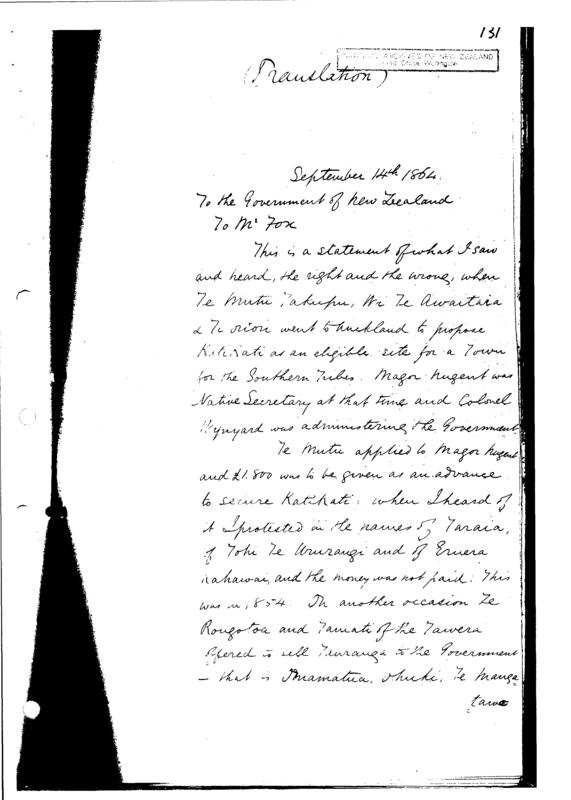 131
ARCHIVES OF NEW ZEALAND
(Translation)
September 14th 1864.
To the Government of New Zealand
To Mr Fox
This is a statement of what I saw
and heard, the right and the wrong, when
Te Mutu, Wi Te Awaitaia
& Te Oriori went to Auckland to propose
Katikati as an eligible site for a Town
for the Southern Tribes. Magor Nugent was
Native Secretary at that time and Colonel
Wynyard was administering the Government
Te Mutu applied to Magor Nugent
and £1.800 was to be given as an advance
to secure Katikati: when I heard of
it I protested in the names of Taraia,
of Tohi Te Ururangi and of Eruera
and the money was not paid: This
was in 1854. On another occasion Te
Rongotoa and Tamati of the Tawera
offered to sell Tauranga to the Government
– that is Otuhi, Te Manga
tawa